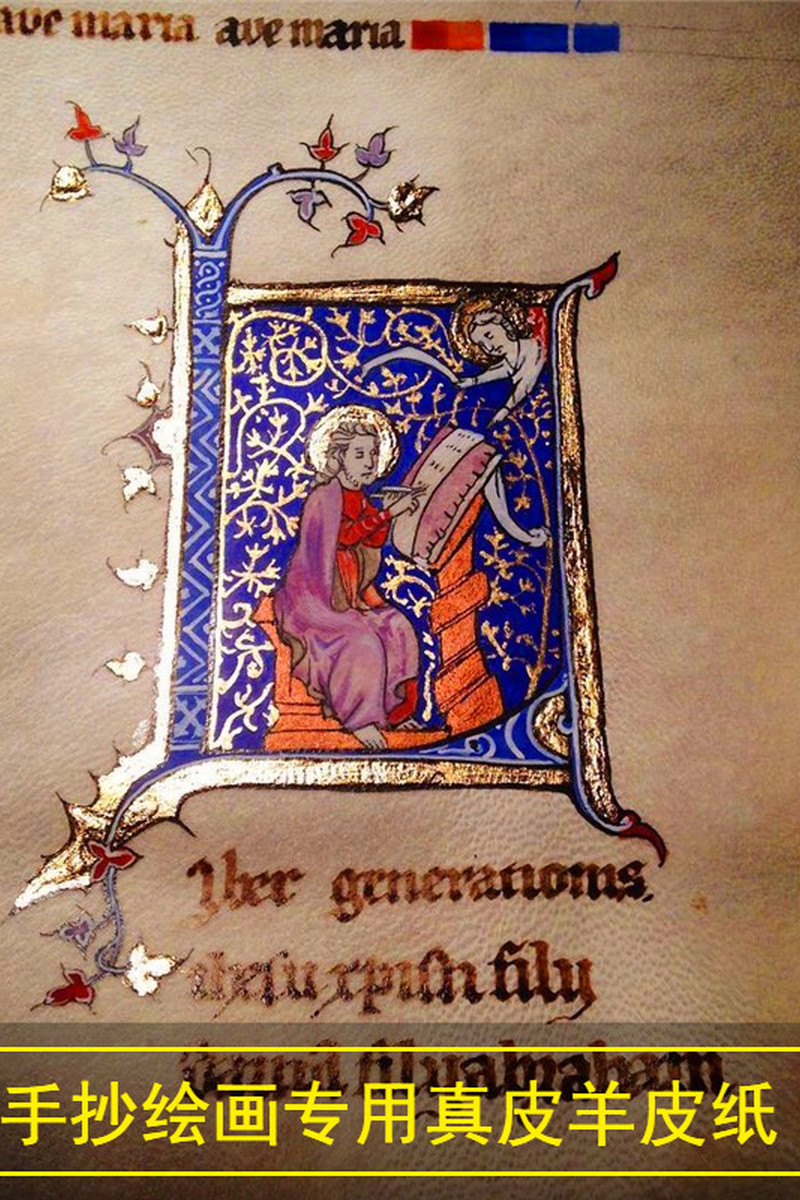 ave maria ave maria
Iber generationis
ihesu xpisti filij
david filij abraham
手抄绘画专用真皮羊皮纸